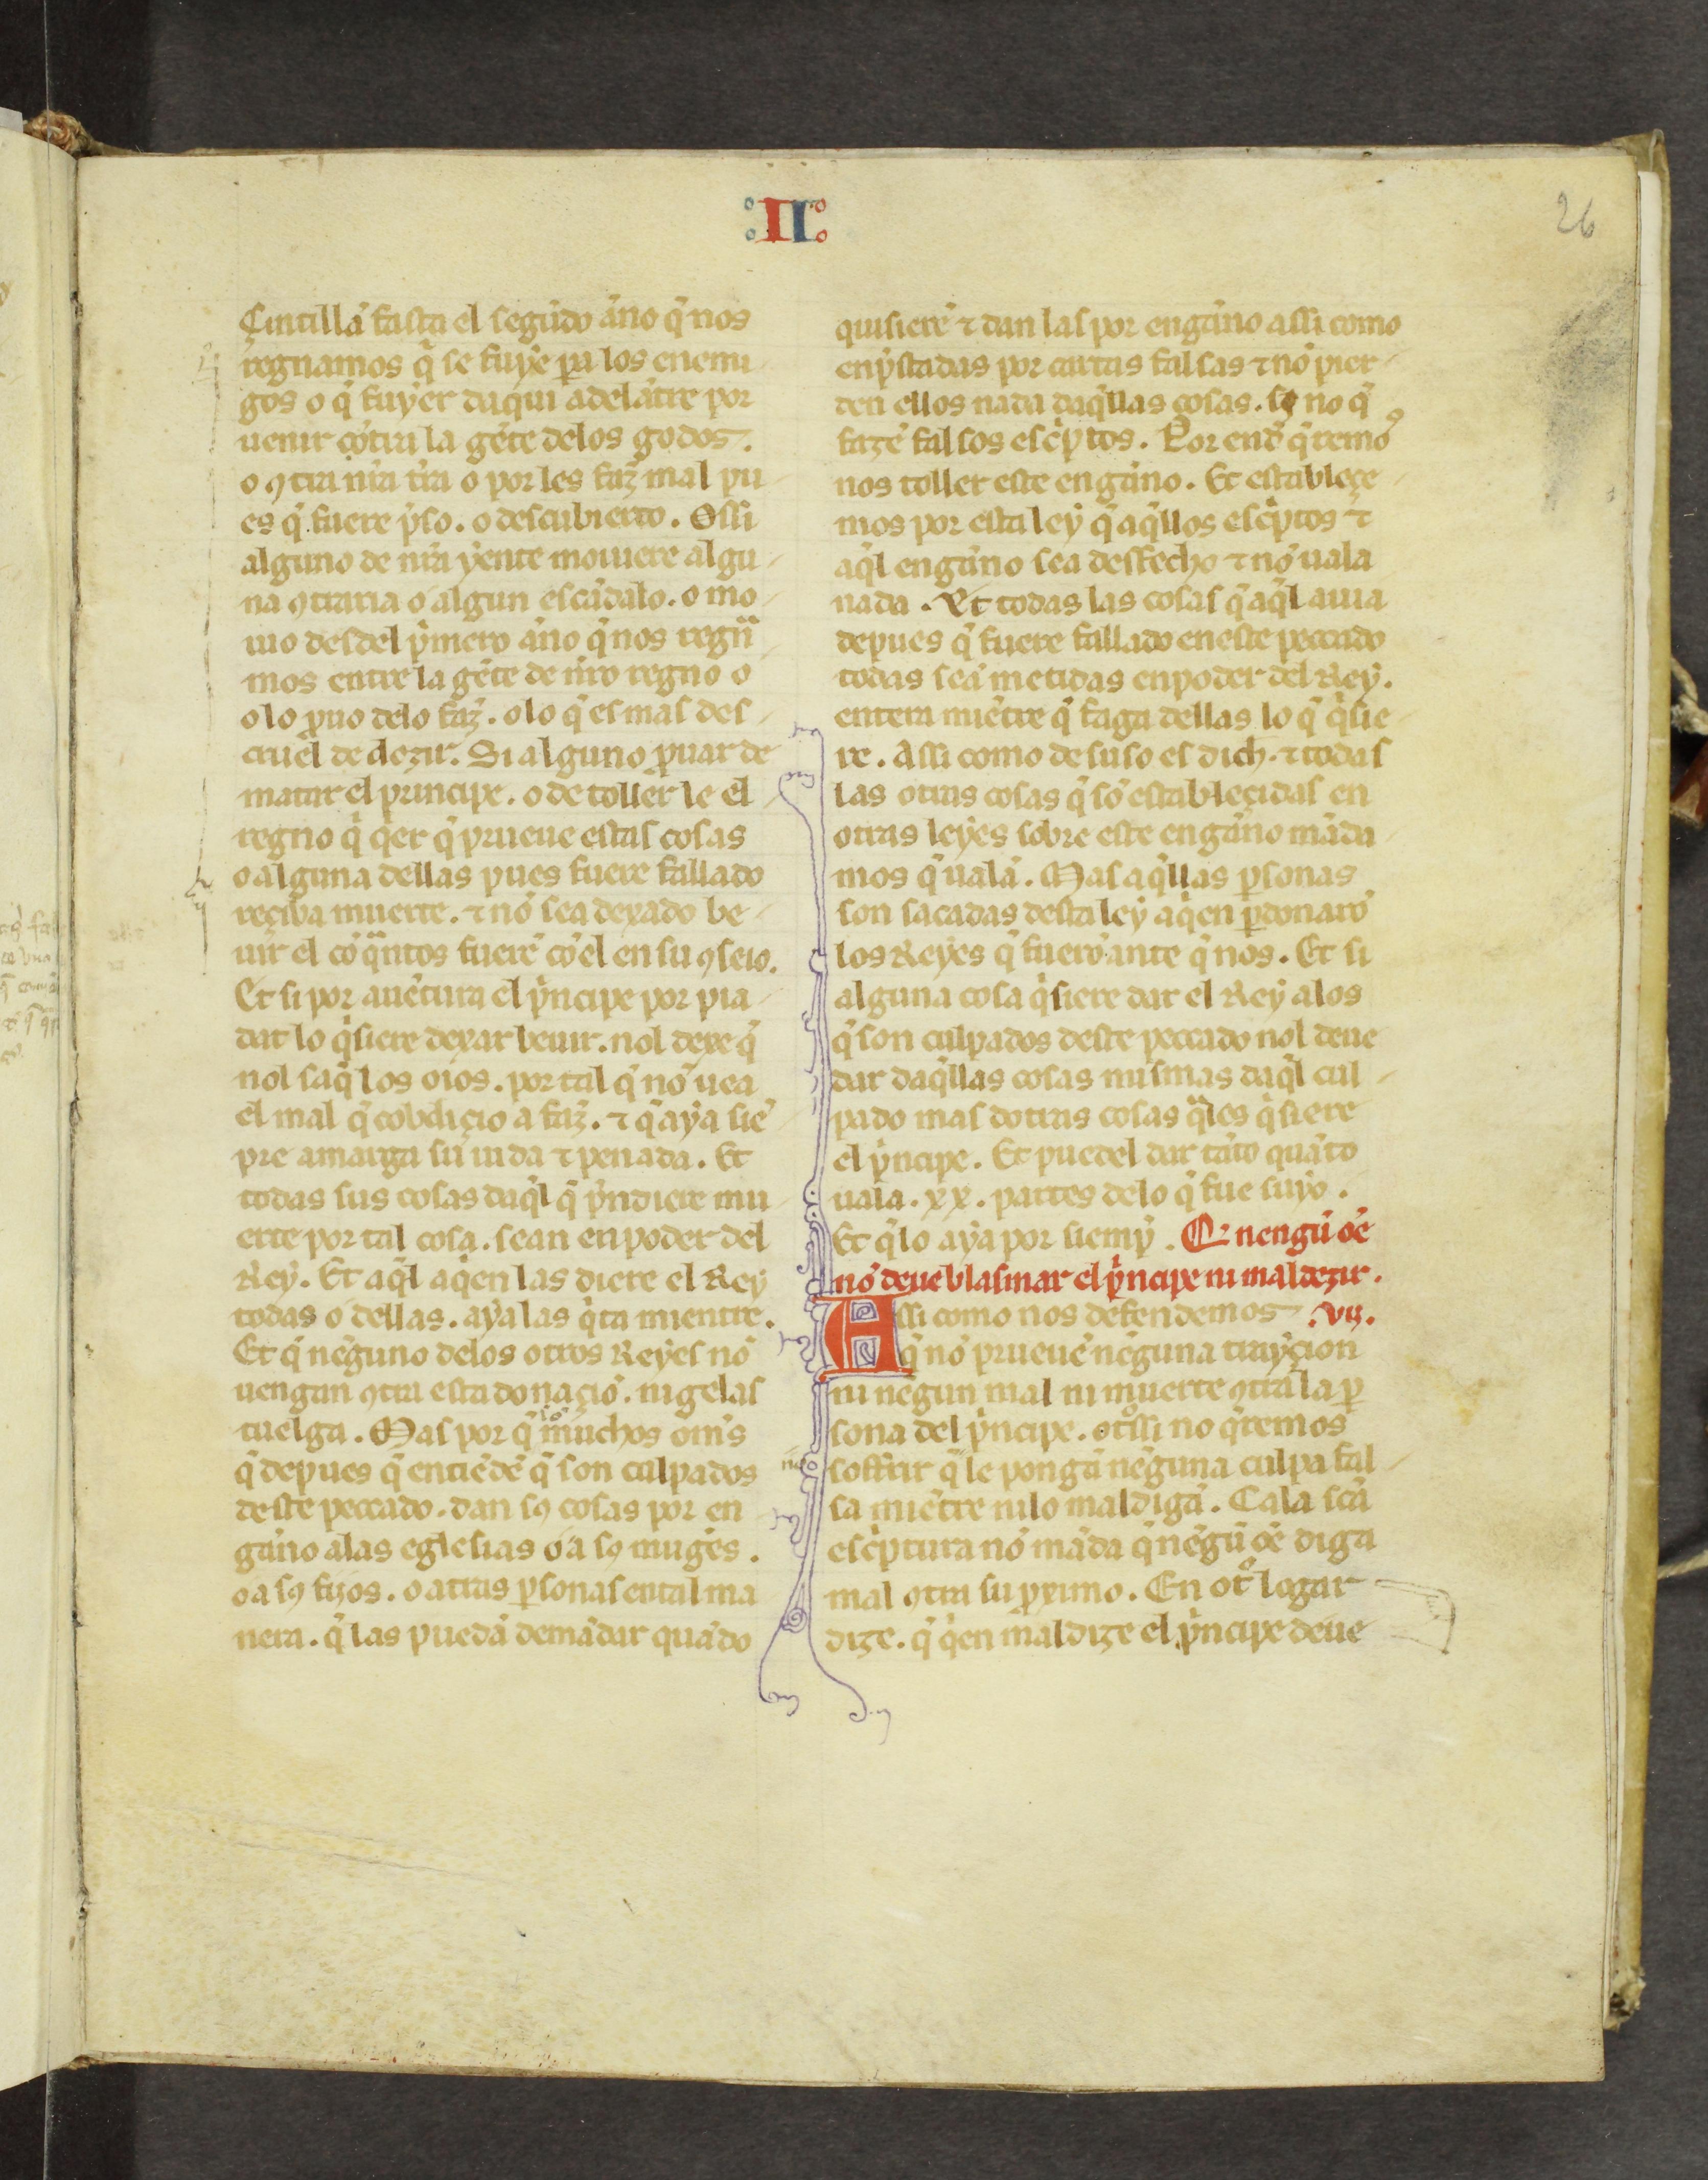 II
26
Çintillã fasta el segũdo ãno q̃ nos
regnamos q̃ se fuyẽ pa los enemi
gos o q̃ fuyer daqui adelãtre por
uenir cõtra la gẽte delos godos.
o ꝯtra nr̃a tr̃a o por les faz̃ mal pu
es q̃ fuere p̃so. o descubierto. O ssi
alguno de nr̃a yente mouiere algu
na ꝯtraria o algun escãdalo. o mo
uio desdel p̃mero ãno q̃ nos regna
mos entre la gẽte de nr̃o regno o
o lo prouo delo faz̃. o lo q̃ es mas des
cruel de dezir. Si alguno prouar de
matar el principe. o de toller le el
regno q̃ q̃er q̃ prueue estas cosas
o alguna dellas pues fuere fallado
reçiba muerte. ⁊ nõ sea dexado be
uir el cõ q̃ntos fuerẽ cõ el en su ꝯseio.
Et si por auẽtura el p̃ncipe por pia
dat lo q̃siere dexar beuir. nol dexe q̃
nol saq̃ los oios. por tal q̃ nõ uea
el mal q̃ cobdiçio a faz̃. ⁊ q̃ aya siẽ
pre amarga su uida ⁊ penada. Et
todas sus cosas daq̃l q̃ p̃ndiere mu
erte por tal cosa. sean en poder del
Rey. Et aq̃l aq̃en las diere el Rey
todas o dellas. aya las q̃ta mientre.
Et q̃ nẽguno delos otros Reyes nõ
uengan ꝯtra esta donaçiõ. ni gelas
tuelga. Mas por q̃ sõ muchos om̃s
q̃ depues q̃ entiẽdẽ q̃ son culpados
deste peccado. dan sꝯ cosas por en
gãno alas eglesias o a sꝯ muges̃.
o a sꝯ fijos. o atras psonas en tal ma
nera. q̃ las puedã demãdar quãdo
quisierẽ ⁊ dan las por engãno assi como
enp̃stadas por cartas falsas ⁊ nõ pier
den ellos nada daq̃llas cosas. si no q̃
fazẽ falsos esc̃ptos. Por endẽ q̃remoꝰ
nos toller este engãno. Et estableçe
mos por esta ley q̃ aq̃llos esc̃ptos ⁊
aq̃l engãno sea desfecho ⁊ nõ uala
nada. Et todas las cosas q̃ aq̃l auia
depues q̃ fuere fallado en este peccado
todas seã metidas en poder del Rey.
entera miẽtre q̃ faga dellas lo q̃ q̃sie
re. Assi como de suso es dich. ⁊ todas
las otras cosas q̃ sõ estableçidas en
otras leyes sobre este engãno mãda
mos q̃ ualã. Mas aq̃llas psonas
son sacadas desta ley aq̃en pdonarõ
los Reyes q̃ fuerõ ante q̃ nos. Et si
alguna cosa q̃siere dar el Rey alos
q̃ son culpados deste peccado nol deue
dar daq̃llas cosas mismas daq̃l cul
pado mas dotras cosas q̃les q̃siere
el p̃ncipe. Et puedel dar tãto quãto
uala. xx. partes delo q̃ fue suyo.
Et q̃lo aya por siemp̃. Q̃ nengũ oẽ
nõ deue blasmar el p̃ncipe ni maldezir.
Assi como nos defendemos .vij.
q̃ nõ prueuẽ nẽguna trayçion
ni nẽgun mal ni muerte ꝯtra la p
sona del p̃ncipe. ot̃ssi no q̃remos
soffrir q̃ le pongã nẽguna culpa fal
sa miẽtre ni lo maldigã. Ca la scã
esc̃ptura nõ mãda q̃ nẽgũ oẽ diga
mal ꝯtra su p̃ximo. En ot̃ logar
dize. q̃ q̃en maldize el p̃ncipe deue